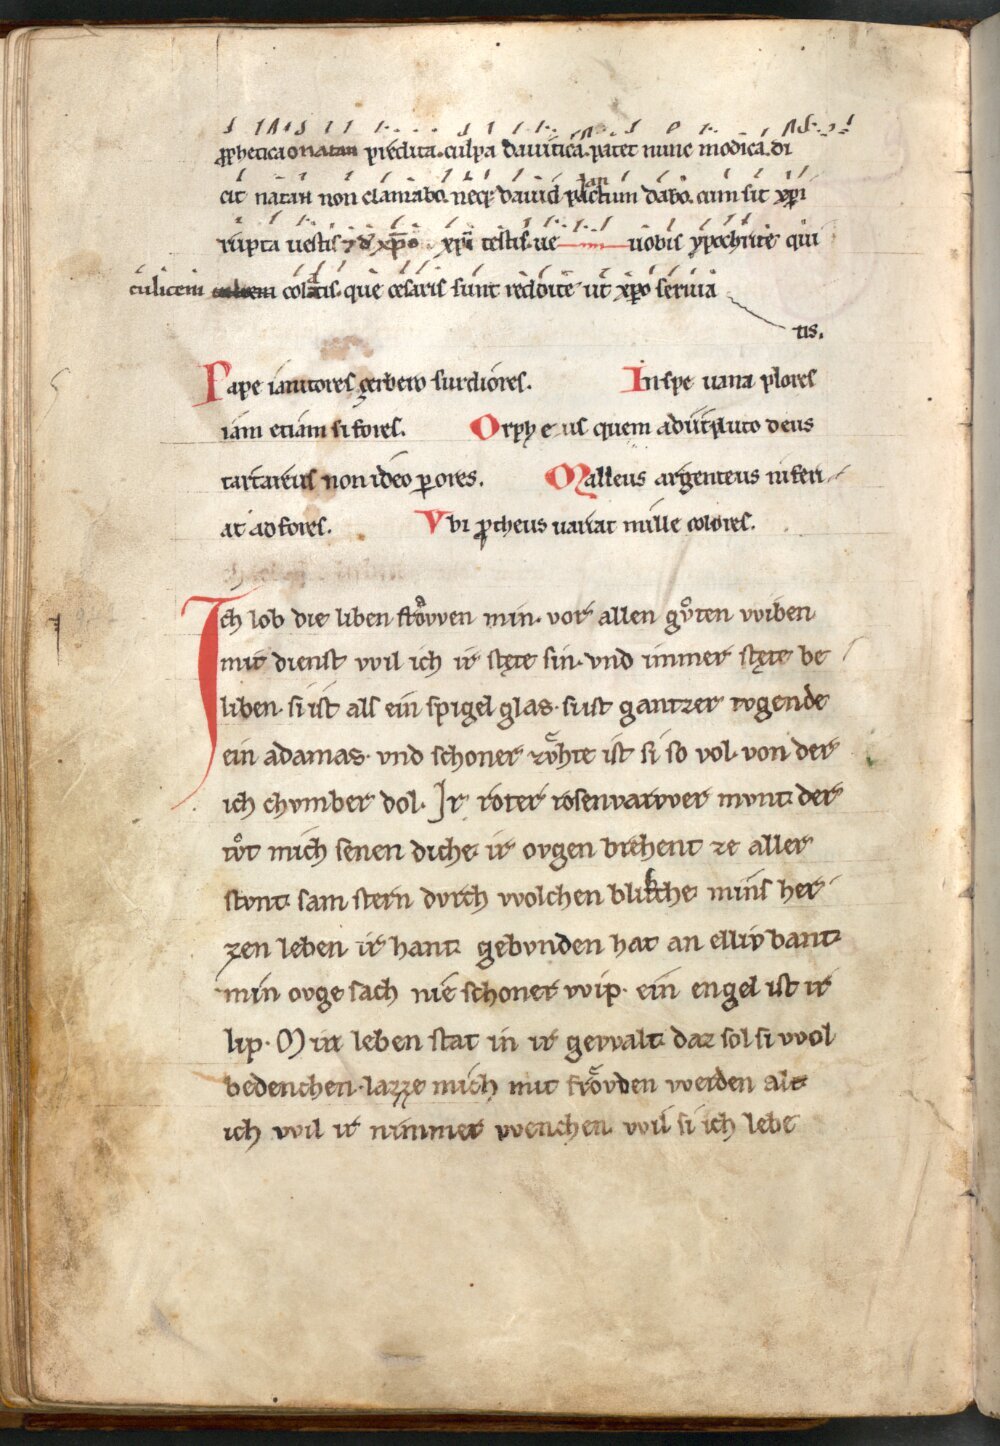 ꝓphetica onatan p̄redita. culpa dauitica. patet nunc modica. di
cit natan non clamabo. neq; dauid planctum dabo. cum sit xp̄i
rupta uestis ⁊ d̄ xp̄o xp̄i testis. ue uobis ypochrite qui
culicem colatis. que cesaris sunt reddite ut xp̄o seruia
tis.
Pape ianitores cerbero surdiores. In spe uana plores
iam etiam si fores. Orpheus quem adiit pluto deus
tartareus non ideo ꝑores. Malleus argenteus ni feri
at ad fores. Vbi ꝓtheus uariat mille colores.
Ich lob die liben frovͮwen min. vor allen gvͦten wiben
mit dienst wil ich ir stęte sin. vnd immer stęte be
liben. si ist als ein spigel glas. si ist gantzer tvgende
ein adamas. vnd schoner zvͤhte ist si so vol. von der
ich chvmber dol. Ir roter rosenvarwer mvnt. der
tvͦt mich senen diche. ir ovgen brehent ze aller
stvnt. sam stern dvrch wolchen blikche. mins her
zen leben ir hant gebvnden hat an elliv bant.
min ovge sach nie schoner wip. ein engel ist ir
lip. Min leben stat in ir gewalt. daz sol si wol
bedenchen. lazze mich mit frovͤden werden alt
ich wil ir nimmer wenchen. wil si ich lebe